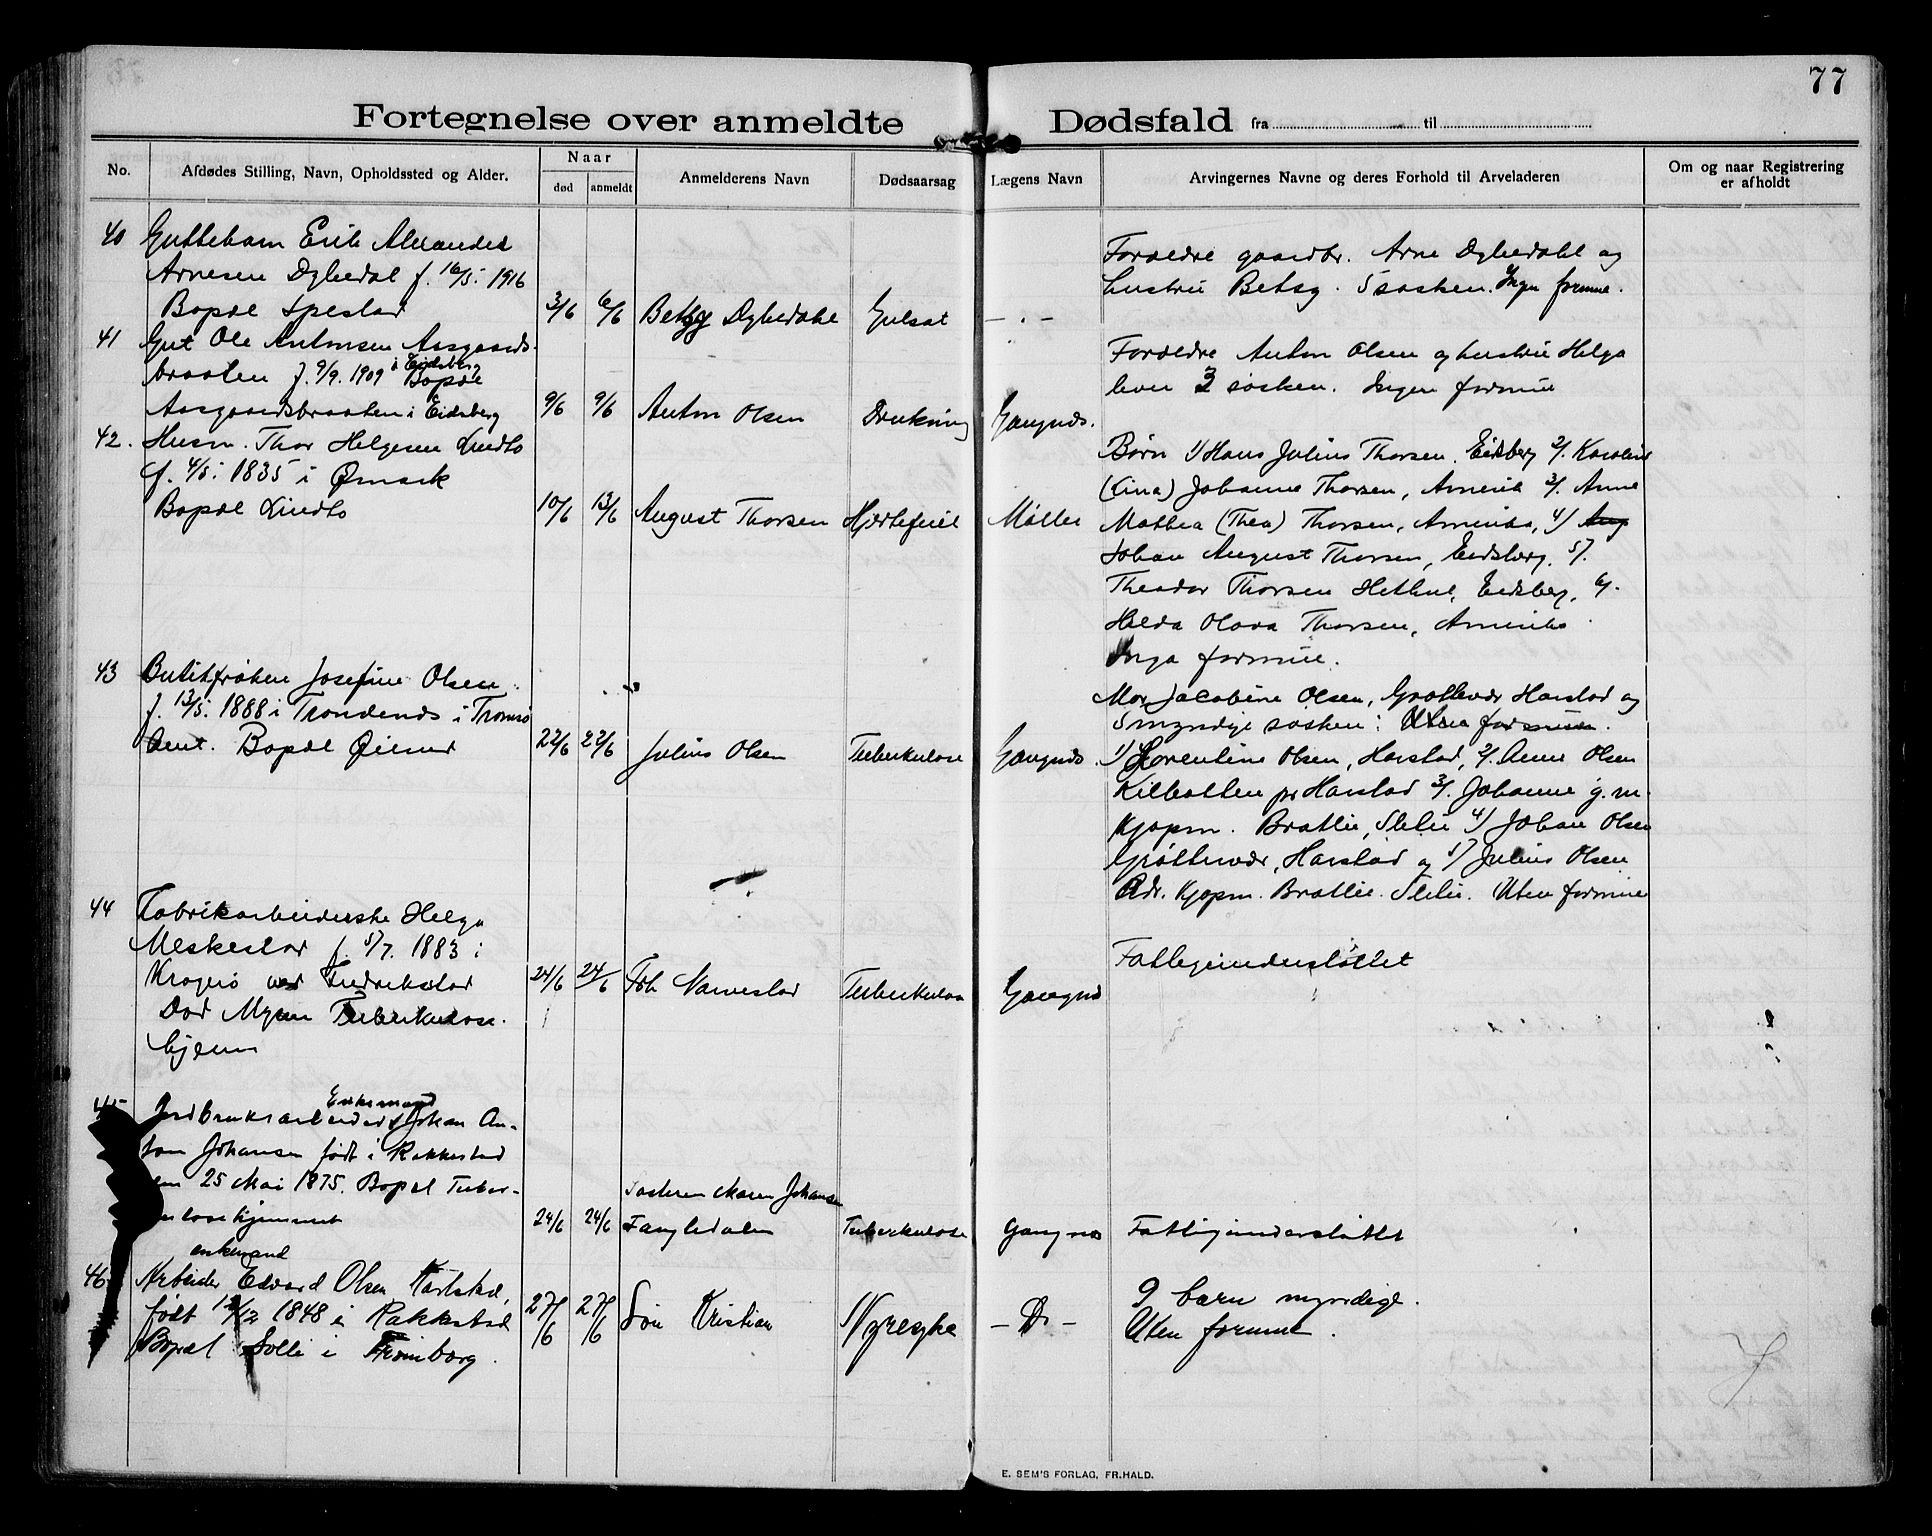 77
Fortegnelse over anmeldte Dødsfald fra til
No.
Afdødes Stilling, Navn, Opholdssted og Alder.
Naar
død
anmeldt
Anmelderens Navn
Dødsaarsag
Lægens Navn
Arvingernes Navne og deres Forhold til Arveladeren
Om og naar Registrering
er afholdt
40 Guttebarn Erik Alexander
Arnesen Dybedal f. 16/5. 1916
Bopæl Spestad 3/6 6/6 Betsy Dybedahl Gulsot - " -
Forældre gaardbr. Arne Dybedahl og
hustru Betsy. 5 søsken. Ingen formue.
41 Gut Ole Antonsen Aasgaards-
braaten f. 9/9. 1909 i Eidsberg Bopæl
Aasgaardsbraaten i Eidsberg 9/6 9/6 Anton Olsen Drukning Gangnæs.
Forældre Anton Olsen og hustru Helga
lever 3 søsken. Ingen formue
42. Husm. Thor Helgesen Lindto
f. 4/5. 1835 i Ømark
Bopæl Lindto 10/6 13/6 August Thorsen Hjertefeil Møller
Børn 1) Hans Julius Thorsen, Eidsberg 2). Karoline
(Lina) Johanne Thorsen, Amerika 3). Anne
Mathea (Thea) Thorsen, Amerika, 4) Aug
Johan August Thorsen, Eidsberg, 5).
Theodor Thorsen Eidsberg, 6).
Hilda Olava Thorsen, Amerika.
Inga formue.
43 Butikfrøken Josefine Olsen
f. 13/5. 1888 i Trondenæs i Tromsø
Amt. Bopæl 22/6 22/6 Julius Olsen Tuberkulose Gangnæs.
Mor Jacobine Olsen, Grøttevær Harstad og
5 myndige søsken: Uten formue.
1) Lorentine Olsen, Harstad, 2). Anne Olsen
Kilbotten pr Harstad 3). Johanne g. m.
Kjøpm. Brattlie, Slitu 4) Johan Olsen
Grøttevær, Harstad og 5) Julius Olsen
Adr. Kjøpm. Brattlie. Slitu. Uten formue
44 Fabrikarbeiderske Helga
Meskestad f. 5/7. 1883 i
Kragerø ved Fredrikstad
Død Mysen Tuberkulose-
hjem 24/6 24/6 Joh Navestad Tuberkulose Gangnæs
Fattigunderstøttet
45 Jordbruksarbeider Enkemand Johan An-
ton Johansen født i Rakkestad
den 25 Mai 1875. Bopæl Tuber-
kulosehjemmet 24/6 24/6 Søsteren Maren Johansen
Fangledalen Tuberkulose Gangnæs Fattigunderstøttet
46 Arbeider enkemand Edvard Olsen Karlstad,
født 12/12 1848 i Rakkestad
Bopæl Solli i Trømborg. 27/6 27/6 Søn Kristian Nyresyke - D° -
9 barn myndige.
Uten formue.
E. SEM'S FORLAG, FR.HALD.